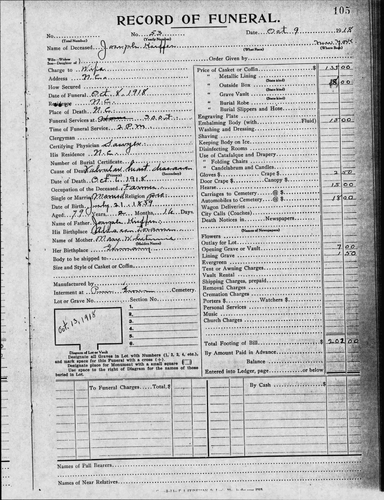 105
RECORD OF FUNERAL.
No. 53 Date Oct 9 1918
(Total Number) (Yearly Number)
Name of Deceased Joseph Kieffer
(What Name) (Where Married)
Order Given by
Charge to Wife
Address N.C.
How Secured
Date of Funeral Oct 8, 1918
Residence N.C.
Place of Death N.C.
Funeral Services at Home
Time of Funeral Service 2 P.M.
Clergyman
Certifying Physician Sawyer
His Residence N.C.
Number of Burial Certificate
Cause of Death Valvular heart disease
Date of Death Oct 1918
Occupation of the Deceased Farmer
Single or Married Married Religion
Date of Birth July 21, 1839
Aged 79 Years 2 Months 16 Days
Name of Father Joseph Kieffer
His Birthplace
Name of Mother Mary
Her Birthplace Germany
Body to be shipped to
Size and Style of Casket or Coffin
Manufactured by
Interment at Cemetery
Lot or Grave No. Section No.
Oct. 13, 1918
1.
2.
3.
4.
5.
6.
Diagram of Lot or Vault
Designate all Graves in Lot with Numbers (1, 2, 3, 4, etc.),
and mark space for this Funeral with a cross (+).
Designate place for Monument with a small square
Use space to right of Diagram for names of those
buried in Lot.
Price of Casket or Coffin 135 00
" Metallic Lining
" Outside Box 18 00
" Grave Vault
" Burial Robe
" Burial Slippers and Hose
Engraving Plate
Embalming Body (with Fluid) 15 00
Washing and Dressing
Shaving
Keeping Body on Ice
Disinfecting Rooms
Use of Catafalque and Drapery
" Folding Chairs
" Candelabrum and Candles
Gloves $ Crape $
Door Crape $ Canopy $
Hearse 15 00
Carriages to Cemetery @ $
Automobiles to Cemetery @ $
Wagon Deliveries
City Calls (Coaches)
Death Notices in Newspapers
Flowers
Outlay for Lot
Opening Grave or Vault 7 00
Lining Grave 1 50
Evergreen
Tent or Awning Charges
Vault Rental
Shipping Charges, prepaid
Removal Charges
Cremation Charges
Porters $ Watchers $
Personal Services
Music
Church Charges
Total Footing of Bill $ 202 00
By Amount Paid in Advance
Balance
Entered into Ledger, page or below.
To Funeral Charges, Total $
By Cash $
Names of Pall Bearers
Names of Near Relatives